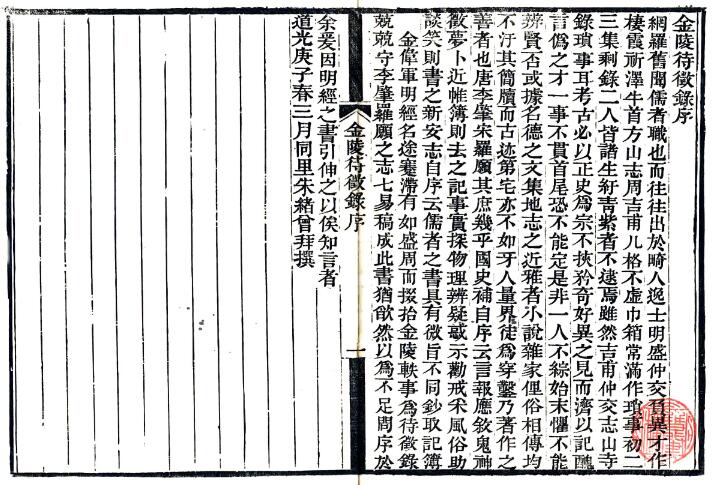 金陵待徵錄序
網羅舊聞儒者職也而往往出於畸人逸士明盛仲交負異才作
棲霞祈澤牛首方山志周吉甫儿格不虛巾箱常滿作瑣事初二
三集剩錄二人皆諸生紆青紫者不逮焉雖然吉甫仲交志山寺
錄瑣事耳考古必以正史爲宗不挾矜奇好異之見而濟以記醜
言僞之才一事不貫首尾恐不能定是非一人不綜始末懼不能
辨賢否或據名德之文集地志之近雅者小說雜家俚俗相傳均
不汙其簡牘而古迹第宅亦不如牙人量界徒爲穿鑿乃著作之
善者也唐李肇朱羅願其庶幾乎國史補自序云言報應敘鬼神
徵夢卜近帷簿則去之記事實探物理辨疑惑示勸戒采風俗助
談笑則書之新安志自序云儒者之書具有微旨不同鈔取記簿
金偉軍明經名途蹇滯有如盛周而掇拾金陵軼事爲待徵錄
兢兢守李肇羅願之志七易稿成此書猶欿然以爲不足周序於
金陵待徵錄序 一
余爰因明經之書引伸之以俟知言者
道光庚子春三月同里朱緒曾拜撰